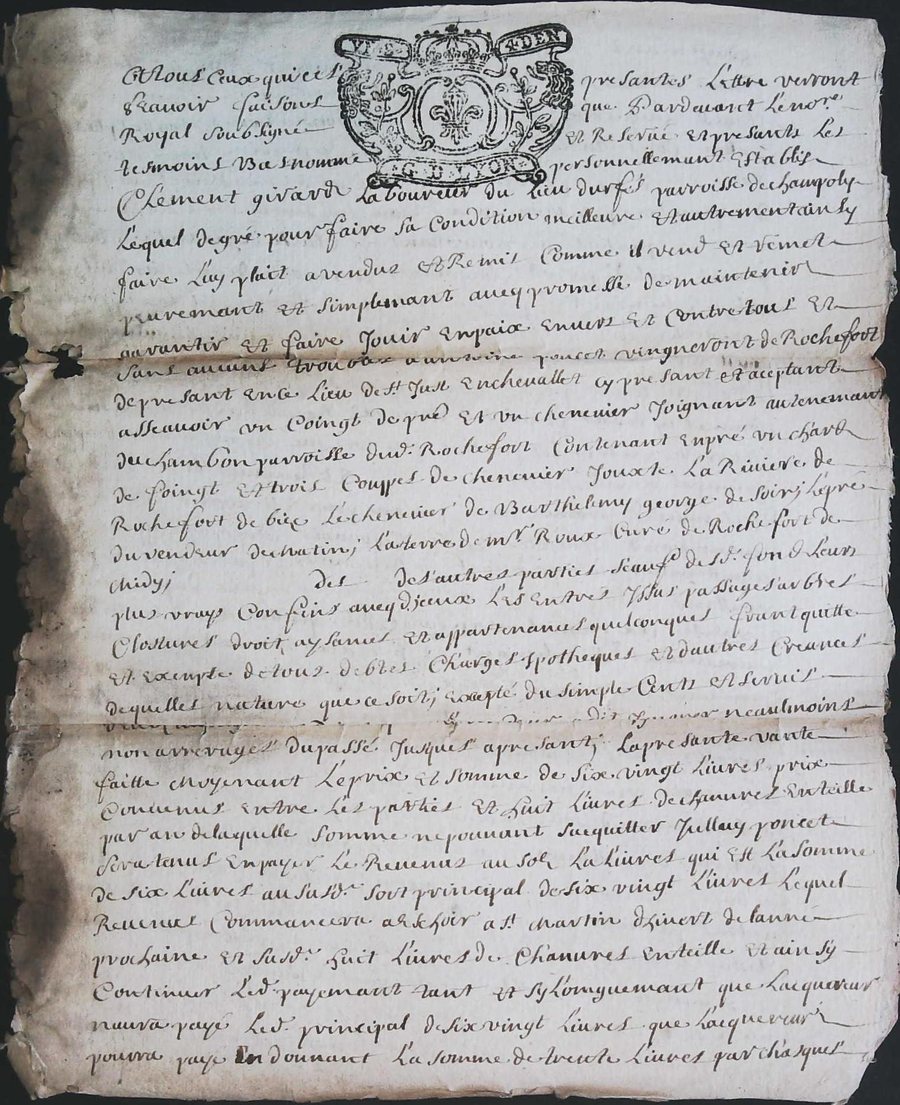 VN S 4 DEN
G D LYON
A tous ceux qui ces presantes Lettre verront
Scavoir faisons que Pardavant Le nore
Royal soubsigné et Reservé et presants Les
tesmoins Bas nommé personnellemant establis
Clement girard Laboureur du Lieu durfés parroisse de champoly
Lequel de gré pour faire sa Condition meilleure et autrement ainsy
faire Luy plait a vendus et Remis Comme il vend et Remet
peuremant et simplemant avecq promesse de maintenir
garantir et faire Jouir en paix envers et Contre tous et
sans aucuns trouble a antoine poncet vingneront de Rochefort
de presant en ce Lieu de st Just en chevallet cy presant et aceptant
assavoir un Coingt de pré et un chenevier Joignant au tenemant
du chambon parroisse dud. Rochefort Contenant en pré un chard
de foingt et trois Couppes de chenevier Jouxte La Riviere de
Rochefort de bize Le chenevier de Barthelemy george de soir; Le pré
du vendeur de matin; La terre de mr. Roux Curé de Rochefort de
midy; des autres parties sauf de sd. fond Leurs
plus vrays Confins avecq d'jceux Les Entrés Issus passages arbres
Clostures droit, aysances et appartenances quelconques franc quitte
et Exempte de tous debtes Charges ypotheques et d'autres Creances
de quelles nature que ce soit; Excepté du simple Cents et servis
neaulmoins
non arrerages du passé Jusques apresant; La presante vante
faitte moyenant Le prix et somme de six vingt Livres prix
Convenus Entre Les parties et huit Livres de chanvres en teille
par an de laquelle somme ne pouvant sacquitter Jelluy poncet
sera tenus en payer Le Revenus au sol La Livres qui est La somme
de six Livres au susd. sort principal de six vingt Livres Lequel
Revenus Commancera a Eschoir a st. Martin d'hivert de lanné
prochaine et susd. huit Livres de Chanvres en teille et ainsy
Continuer Led. payemant tant et sy Longuemant que Lacquereur
naura payé Led. principal de six vingt Livres que Lacquereur
pourra payé En donnant La somme de trente Livres par chasques